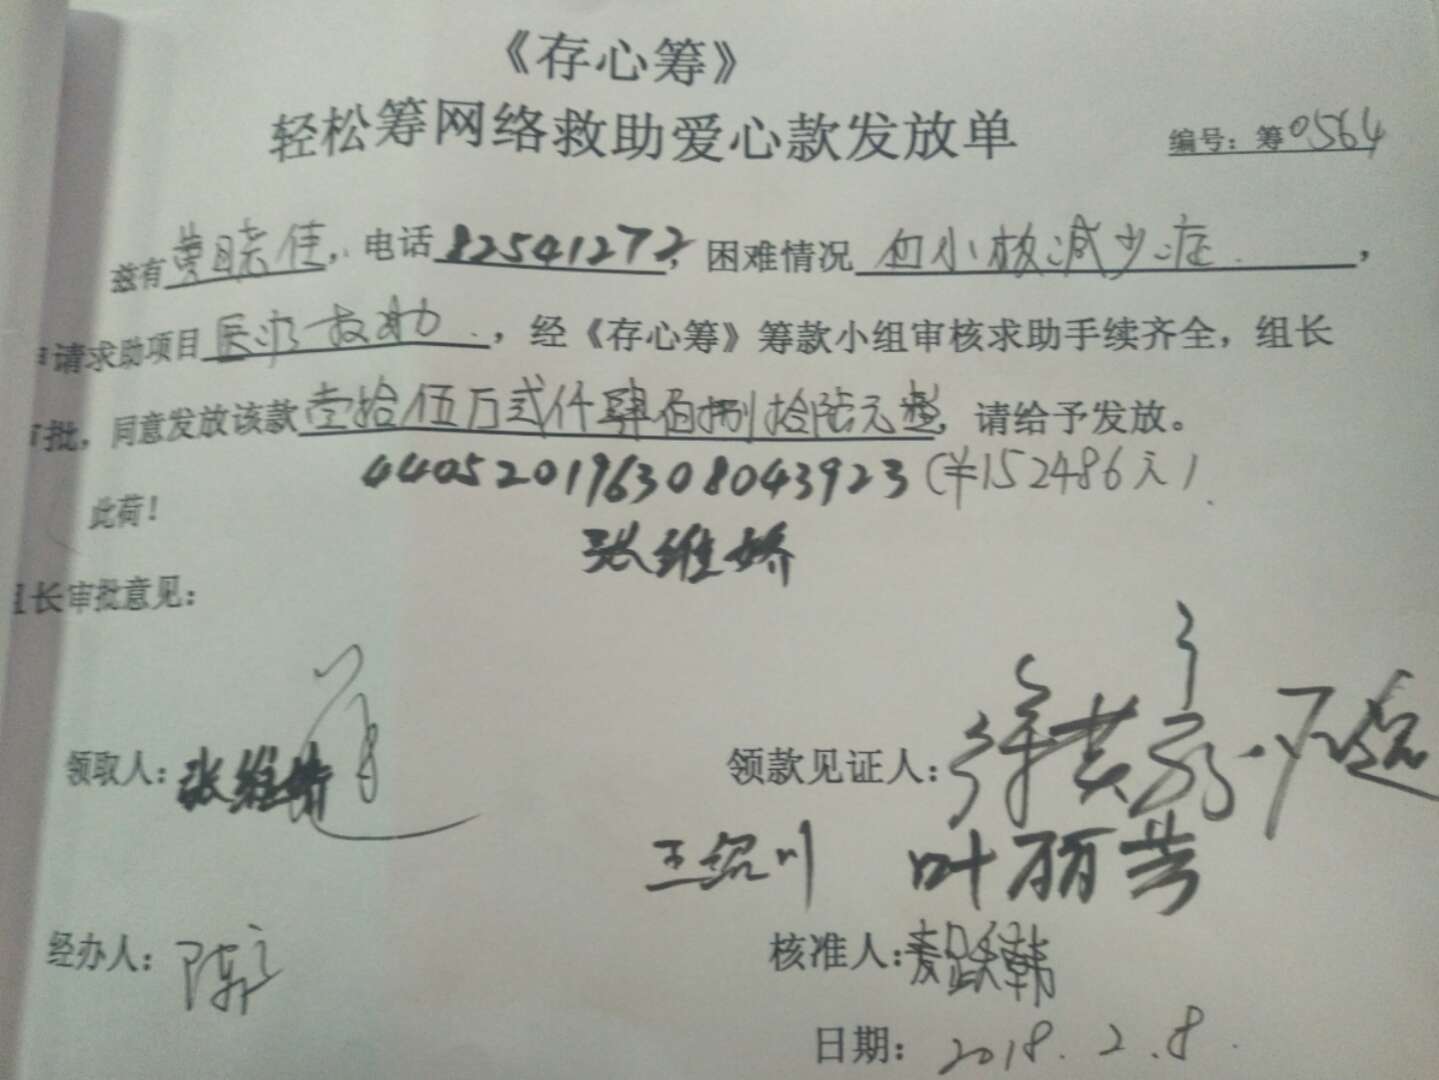 《存心筹》
轻松筹网络救助爱心款发放单
编号：筹0564
兹有黄晓佳，电话82541272，困难情况血小板减少症，
申请求助项目医疗救助，经《存心筹》筹款小组审核求助手续齐全，组长
审批，同意发放该款壹拾伍万贰仟肆佰捌拾陆元整，请给予发放。
440520196308043923（¥152486元）
此荷！
张维娇
组长审批意见：
领取人：张维娇
领款见证人：
王绍川 叶丽芸
经办人：陈
核准人：麦跃韩
日期：2018.2.8